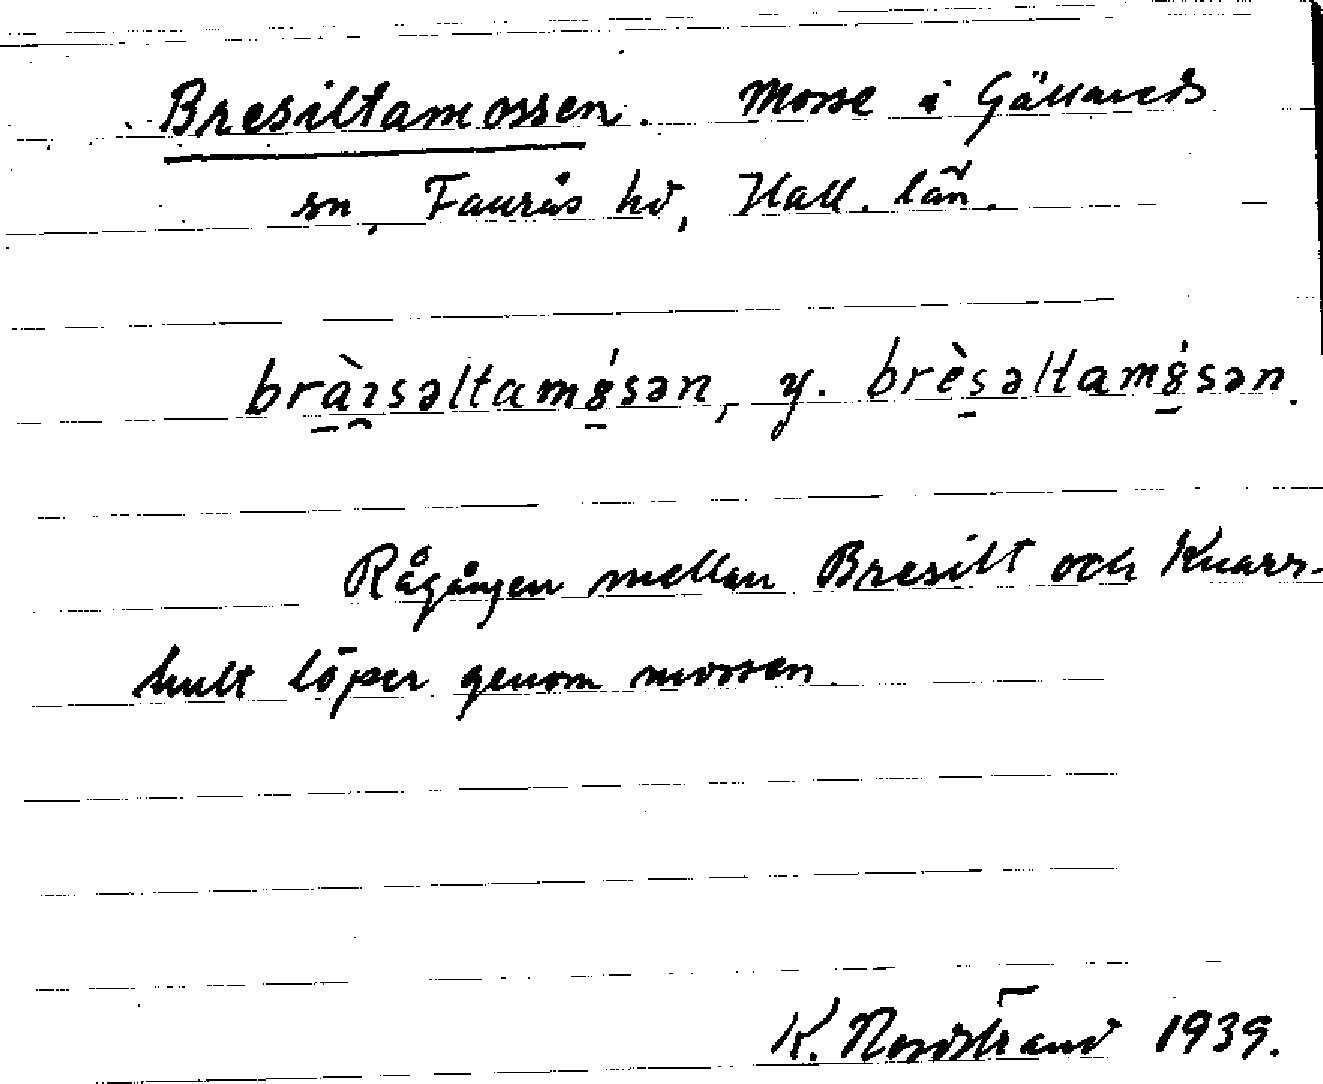 Bresiltamossen. Mosse i Gällareds
sn, Faurås hd, Hall. län.
bràısəltamǵsən, y. brèsəltamǵsən.
Rågången mellan Bresilt och Knarr-
hult löper genom mossen.
K. Nordstrand 1939.